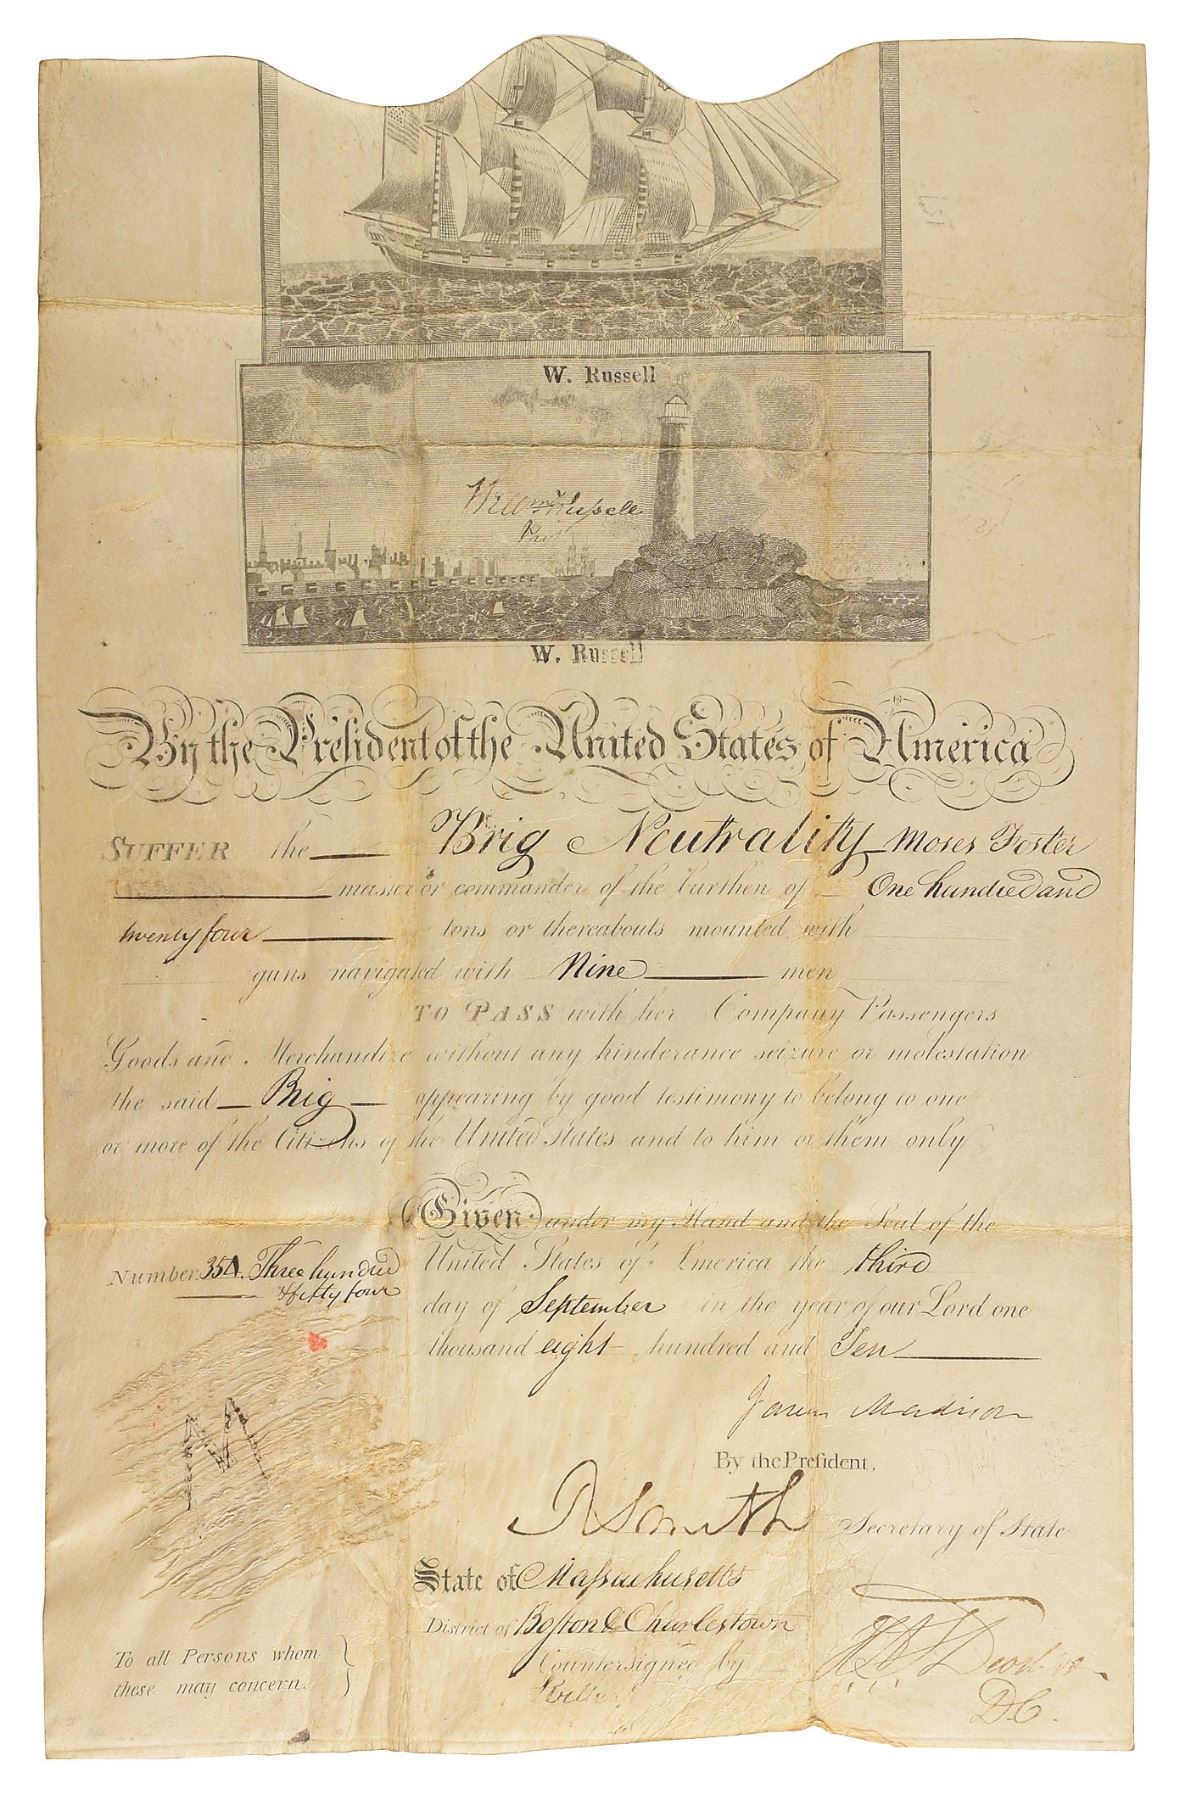 W. Russell
Wm Russell
W. Russell
By the President of the United States of America
SUFFER the Brig Neutrality Moses Foster
master or commander of the burthen of One hundred and
twenty four tons or thereabouts mounted with
guns navigated with Nine men
TO PASS with her Company Passengers
Goods and Merchandize without any hinderance seizure or molestation
the said Brig appearing by good testimony to belong to one
or more of the Citizens of the United States and to him or them only
Given under my Hand and the Seal of the
United States of America the third
day of September in the year of our Lord one
thousand eight hundred and Ten
Number 354. Three hundred
& fifty four
James Madison
By the President,
R Smith Secretary of State
State of Massachusetts
District of Boston & Charlestown
Countersigned by
H A S Dearborn
D.C.
To all Persons whom
these may concern.
M